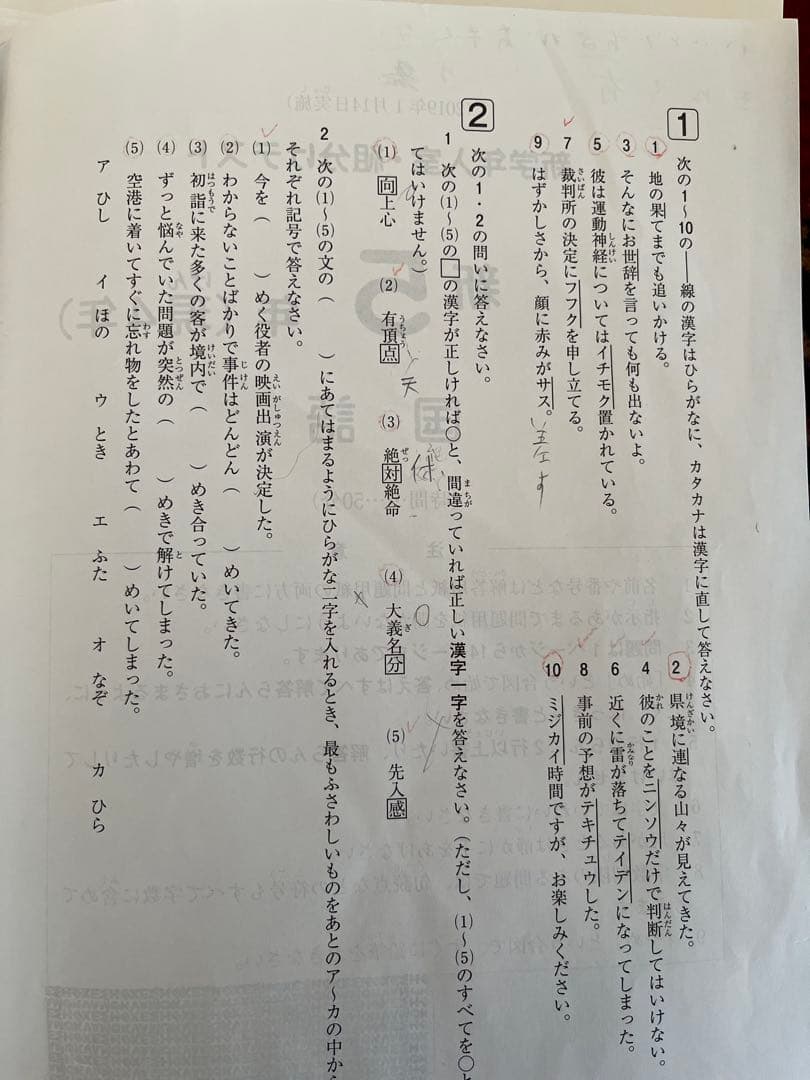 1 次の1～10の――線の漢字はひらがなに、カタカナは漢字に直して答えなさい。
1 地の果てまでも追いかける。
2 県境に連なる山々が見えてきた。
3 そんなにお世辞を言っても何も出ないよ。
4 彼のことをニンソウだけで判断してはいけない。
5 彼は運動神経についてはイチモク置かれている。
6 近くに雷が落ちてテイデンになってしまった。
7 裁判所の決定にフフクを申し立てる。
8 事前の予想がテキチュウした。
9 はずかしさから、顔に赤みがサス。
10 ミジカイ時間ですが、お楽しみください。
2 次の1・2の問いに答えなさい。
1 次の(1)～(5)の□の漢字が正しければ○と、間違っていれば正しい漢字一字を答えなさい。（ただし、(1)～(5)のすべてを○と
てはいけません。）
(1) 向上心
(2) 有頂点 天
(3) 絶対絶命 体
(4) 大義名分 ○
(5) 先入感
2 次の(1)～(5)の文の（　）にあてはまるようにひらがな二字を入れるとき、最もふさわしいものをあとのア～カの中から
それぞれ記号で答えなさい。
(1) 今を（　）めく役者の映画出演が決定した。
(2) わからないことばかりで事件はどんどん（　）めいてきた。
(3) 初詣に来た多くの客が境内で（　）めき合っていた。
(4) ずっと悩んでいた問題が突然の（　）めきで解けてしまった。
(5) 空港に着いてすぐに忘れ物をしたとあわて（　）めいてしまった。
ア ひし イ ほの ウ とき エ ふた オ なぞ カ ひら